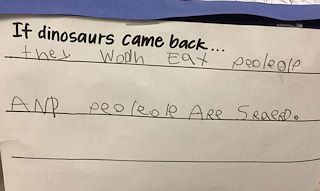 If dinosaurs came back...
they Wodh Eat peoleole
AND peoleole Are Scaerd.